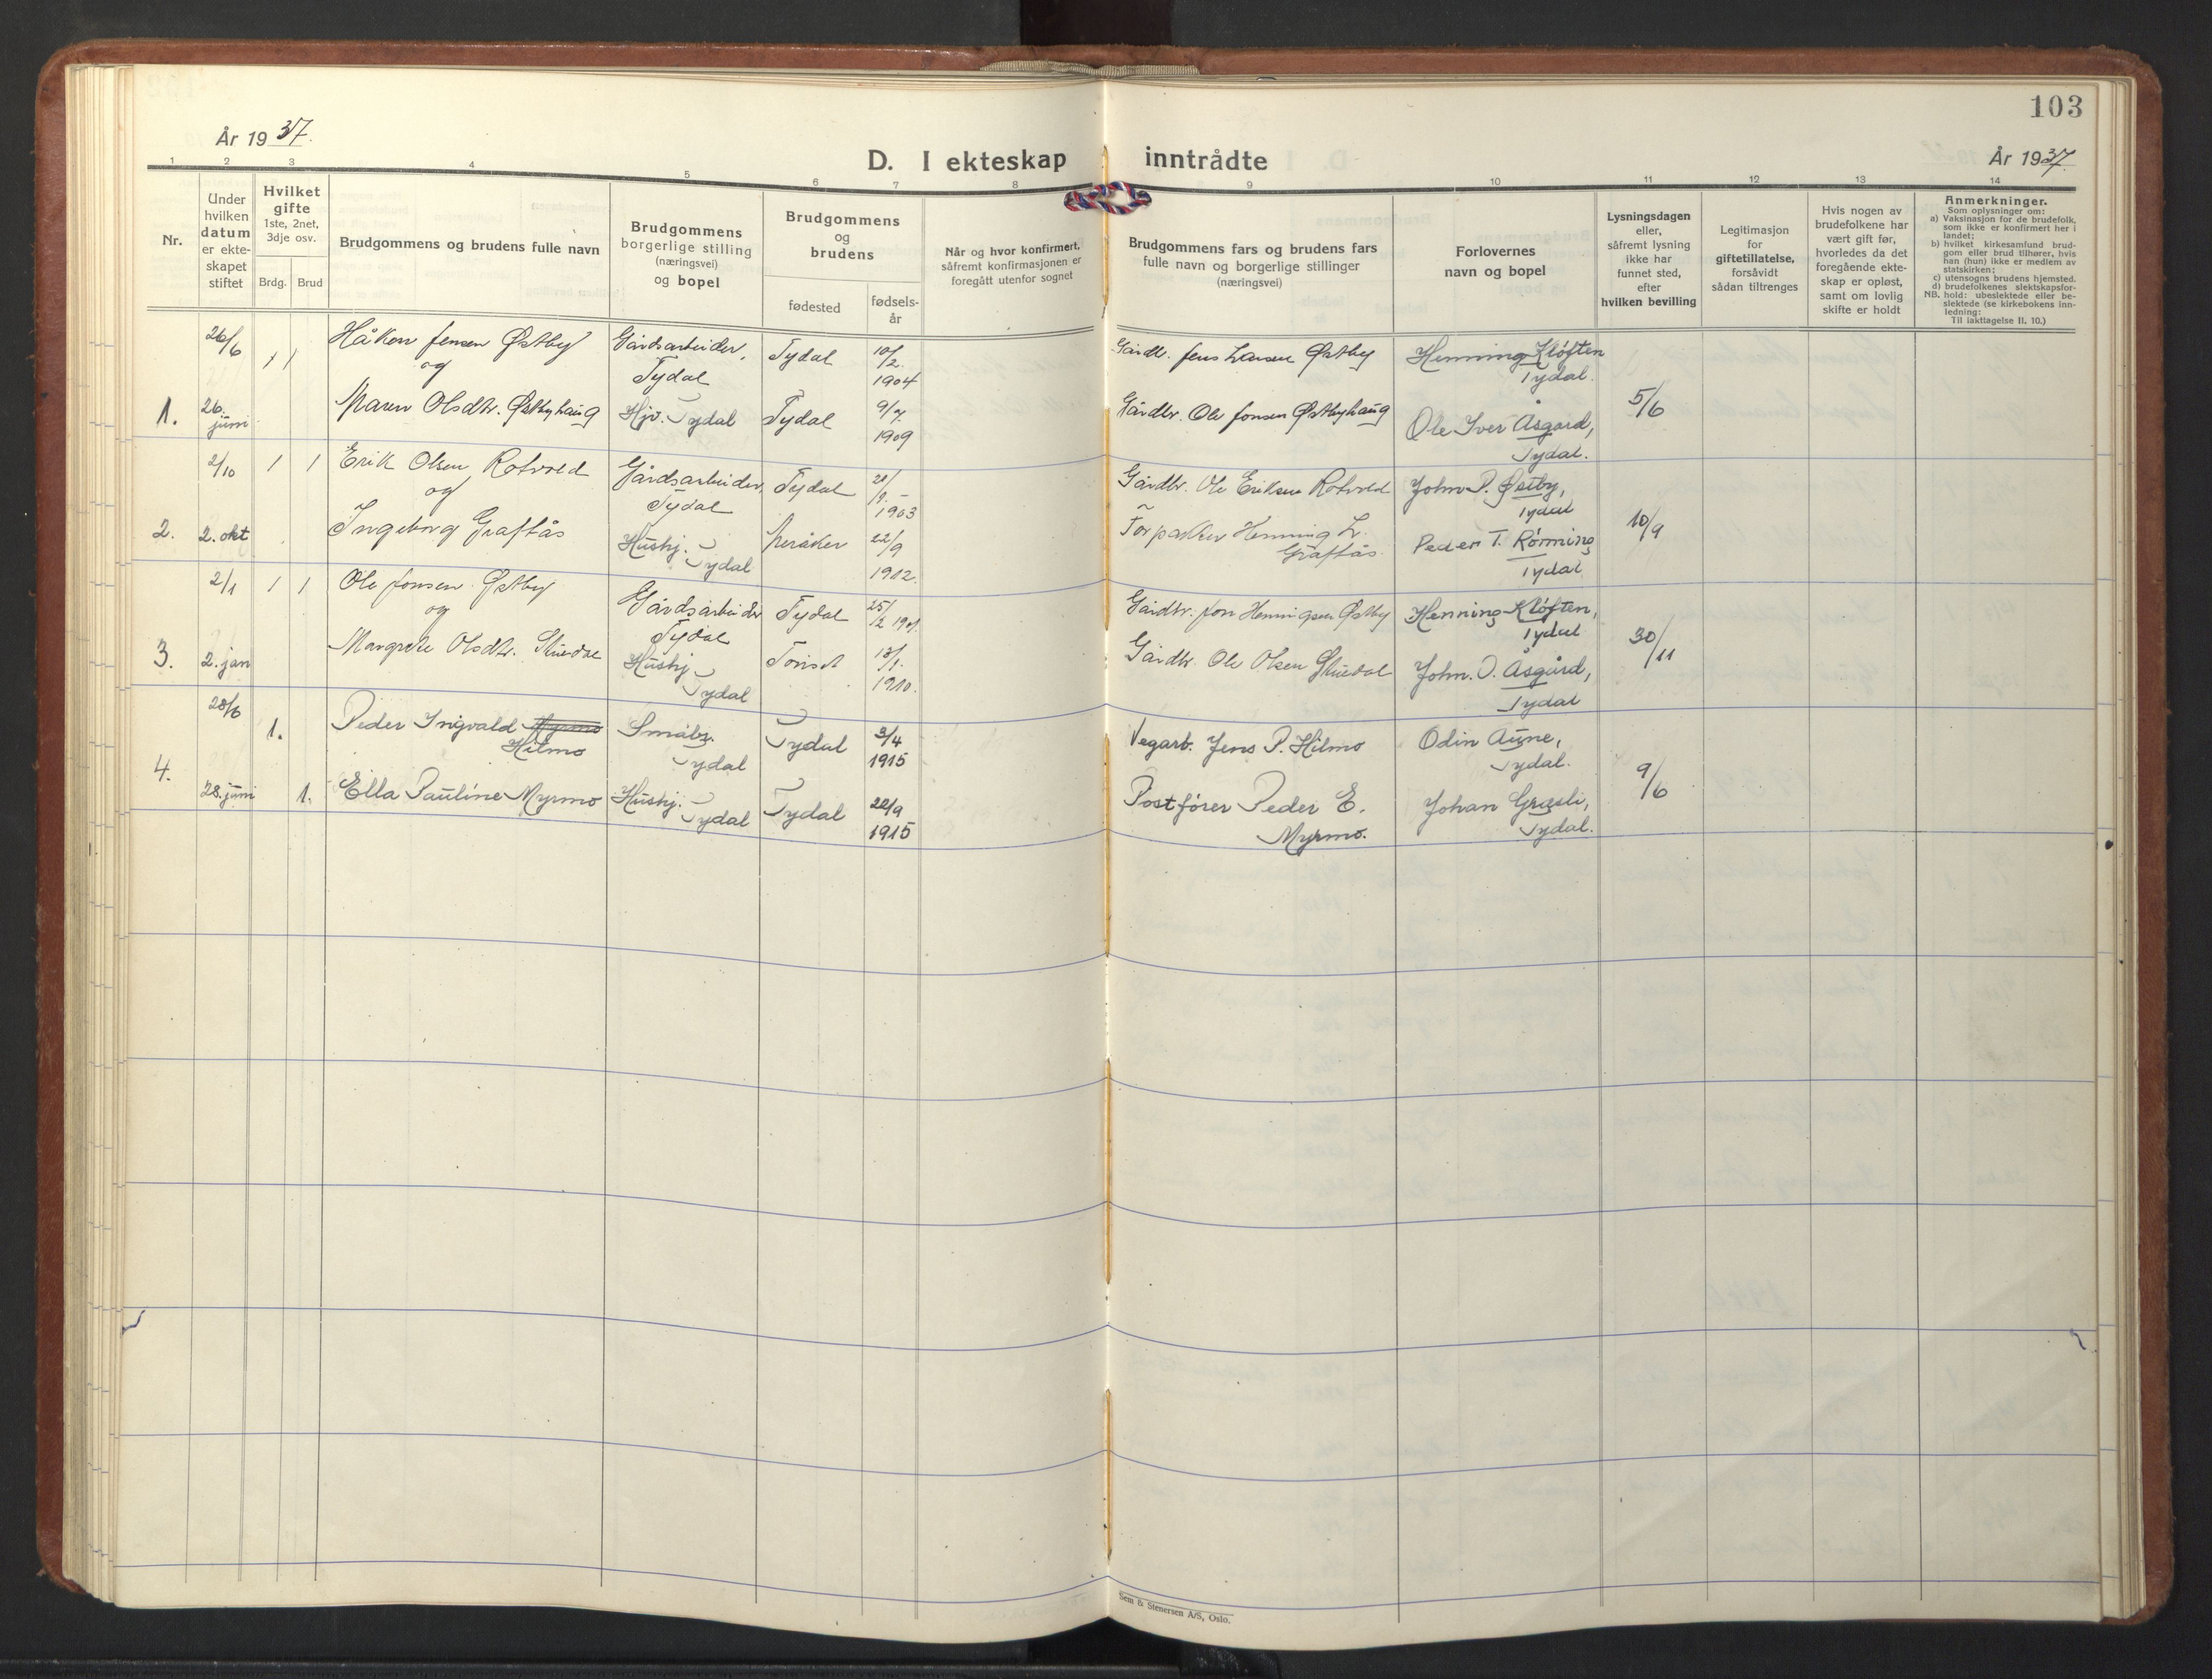 103
År 1937.
D. I ekteskap inntrådte
År 1937.
1 2 3 4 5 6 7 8 9 10 11 12 13 14
Nr.
Under
hvilken
datum
er ekte-
skapet
stiftet
Hvilket
gifte
1ste, 2net,
3dje osv.
Brdg. Brud
Brudgommens og brudens fulle navn
Brudgommens
borgerlige stilling
(næringsvei)
og bopel
Brudgommens
og
brudens
fødested
fødsels-
år
Når og hvor konfirmert,
såfremt konfirmasjonen er
foregått utenfor sognet
Brudgommens fars og brudens fars
fulle navn og borgerlige stillinger
(næringsvei)
Forlovernes
navn og bopel
Lysningsdagen
eller,
såfremt lysning
ikke har
funnet sted,
efter
hvilken bevilling
Legitimasjon
for
giftetillatelse,
forsåvidt
sådan tiltrenges
Hvis nogen av
brudefolkene har
vært gift før,
hvorledes da det
foregående ekte-
skap er opløst,
samt om lovlig
skifte er holdt
Anmerkninger.
Som oplysninger om:
a) Vaksinasjon for de brudefolk,
som ikke er konfirmert her i
landet;
b) hvilket kirkesamfund brud-
gom eller brud tilhører, hvis
han (hun) ikke er medlem av
statskirken;
c) utensogns brudens hjemsted.
d) brudefolkenes slektskapsfor-
NB. hold: ubeslektede eller be-
slektede (se kirkebokens inn-
ledning:
Til iakttagelse II, 10.)
26/6 1 1 Håkon Jensen Østby Gårdsarbeider, Tydal 10/2 1904 Gårdbr. Jens Larsen Østby Henning Kløften
og Tydal Tydal.
1. 26. juni Maren Olsdtr. Østbyhaug Hjv. Tydal Tydal 9/7 1909 Gårdbr. Ole Jonsen Østbyhaug Ole Iver Åsgård, 5/6
Tydal.
2/10 1 1 Erik Olsen Rotvold Gårdsarbeider, Tydal 1903 Gårdbr. Ole Eriksen Rotvold John P. Østby,
og Tydal Tydal
2. 2. okt Ingeborg Græftås Hushj. Meråker 22/9 1912. Forpakter Henning L. Peder T. Rønning 10/9
Tydal Græftås. Tydal
2/1 1 1 Ole Jonsen Østby Gårdsarbeider Tydal 25/2 1901. Gårdbr. Jon Henningsen Østby Henning Kløften,
og Tydal Tydal
3. 2. jan Margrete Olsdtr. Stuedal Hushj. 13/1. 1910. Gårdbr. Ole Olsen Stuedal John. O. Åsgård, 30/11
Tydal Tydal
28/6 1. Peder Ingvald Myrmo Småbr. Tydal 3/4 1915 Vegarb. Jens P. Hilmo Odin Aune,
Hilmo Tydal Tydal.
4. 28. juni 1. Ella Pauline Myrmo Hushj. Tydal 22/9 1915 Postfører Peder E. Johan Græsli, 9/6
Tydal Myrmo. Tydal.
Sem & Stenersen A/S, Oslo.